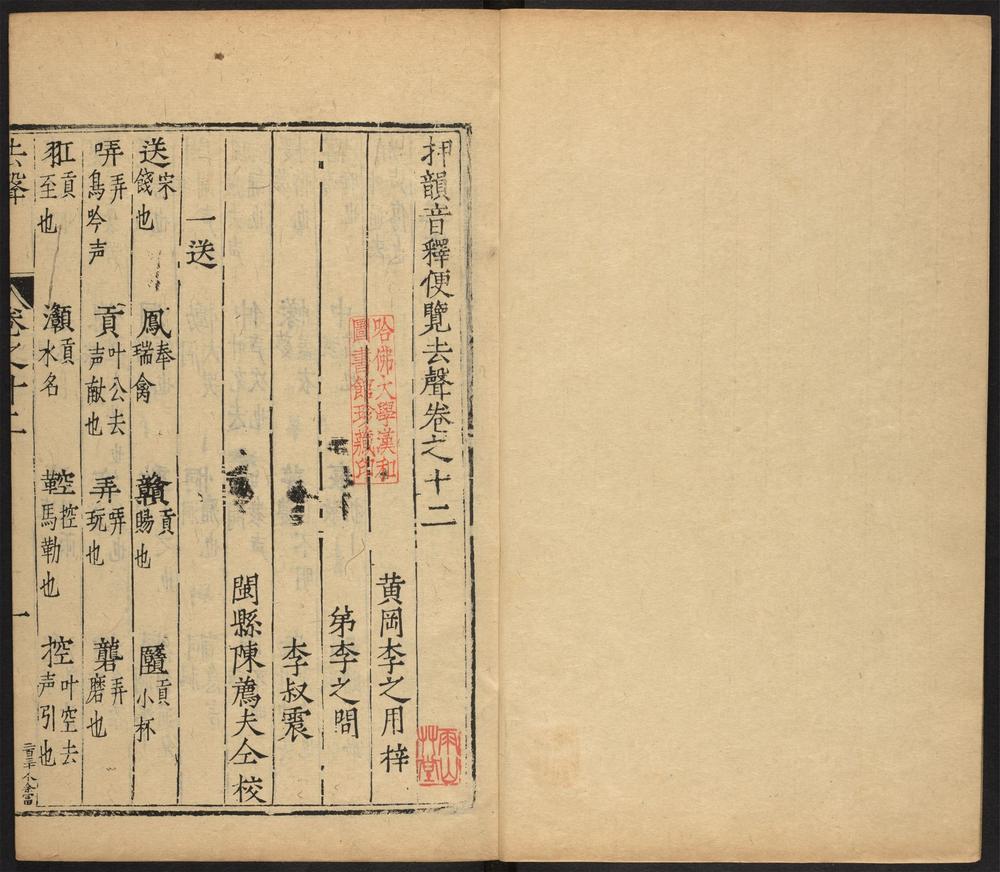 押韻音釋便覽去聲卷之十二
黄岡李之用梓
弟李之問
李叔震
閩縣陳薦夫仝校
一送
送宋餞也 鳳奉瑞禽 贛貢賜也 𨣥貢小杯
哢弄鳥吟声 貢叶公去声献也 弄哢玩也 礱弄磨也
𦏺貢至也 灨貢水名 鞚控馬勒也 控叶空去声引也
去聲 卷之十二 一
哈佛大學漢和圖書館珍藏印
雨山草堂